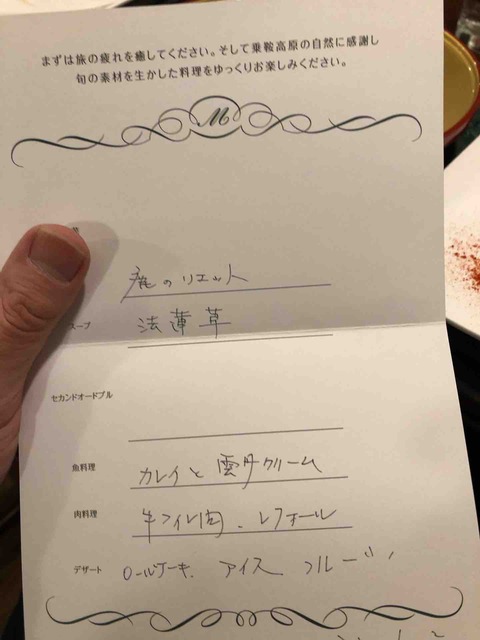 まずは旅の疲れを癒してください。そして乗鞍高原の自然に感謝し
旬の素材を生かした料理をゆっくりお楽しみください。
M
鹿のリエット
スープ 法蓮草
セカンドオードブル
魚料理 カレイと雲丹クリーム
肉料理 牛フィレ肉、レフォール
デザート ロールケーキ、アイス、フルーツ